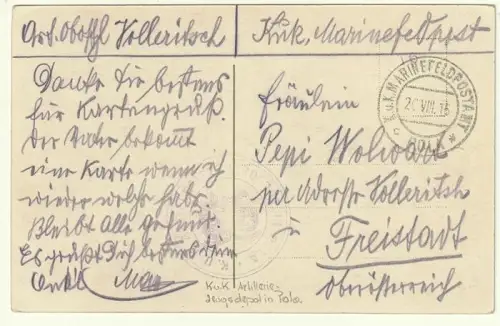 Art. Obstffl Volleritsch
K.u.k. Marinefeldpost
Danke Dir bestens
für Kartengruß.
Der Vater bekommt
eine Karte wenn ich
wieder welche habe.
Bleibt alle gesund.
Es grüßt Dich bestens
Onkel Max
Fräulein
Pepi
per Adresse Volleritsch
in
Freistadt
Oberösterreich
K.u.K. MARINEFELDPOSTAMT
VIII. 16
POLA
K.u.K Artillerie-
zeugsdepot in Pola.